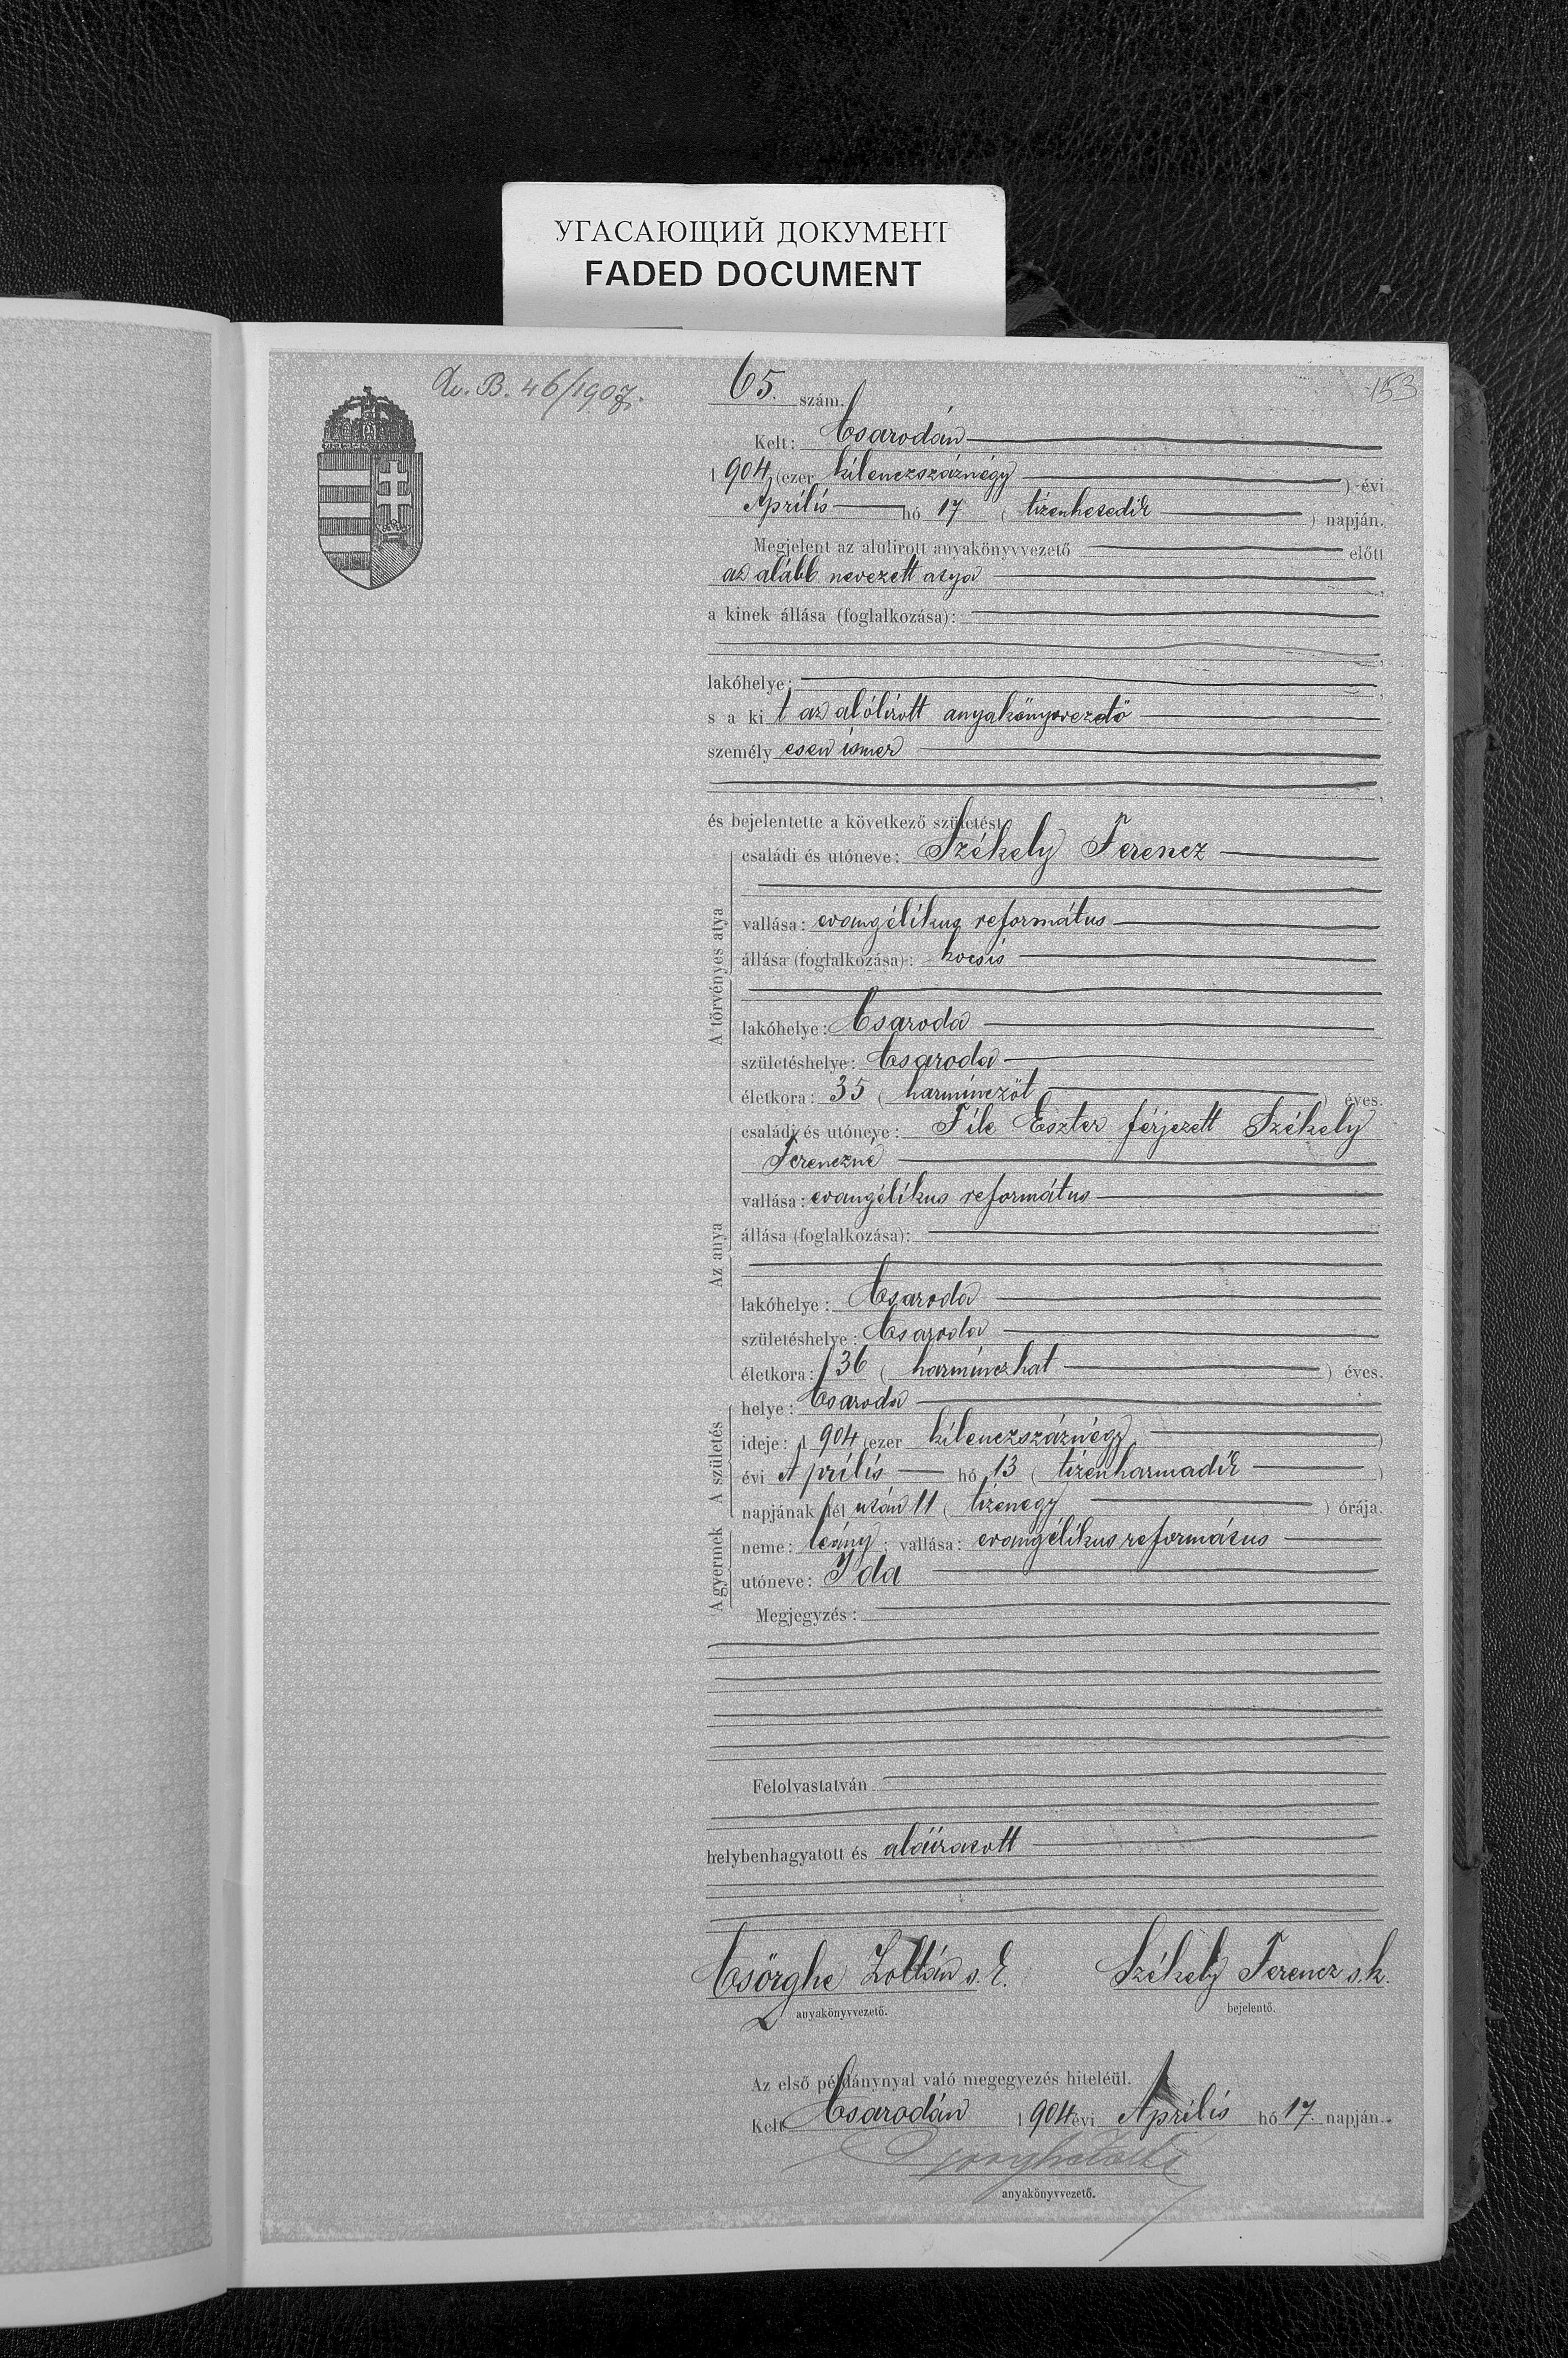 УГАСАЮЩИЙ ДОКУМЕНТ
FADED DOCUMENT
B. 46/1907.
65. szám.
153
Kelt: Csarodán
1904 (ezer kilenczszáznégy) évi
Április hó 17 (tizenhetedik) napján.
Megjelent az alulirott anyakönyvvezető előtt
az alább nevezett atya,
a kinek állása (foglalkozása):
lakóhelye:
s a kit az alólirott anyakönyvvezető
személyesen ismer
és bejelentette a következő születést
A törvényes atya
családi és utóneve: Székely Ferencz
vallása: evangélikus református
állása (foglalkozása): kocsis
lakóhelye: Csaroda
születéshelye: Csaroda
életkora: 35 (harminczöt) éves.
Az anya
családi és utóneve: File Eszter férjezett Székely
Ferenczné
vallása: evangélikus református
állása (foglalkozása):
lakóhelye: Csaroda
születéshelye: Csaroda
életkora: 36 (harminczhat) éves.
A születés
helye: Csaroda
ideje: 1904 (ezer kilenczszáznégy)
évi Április hó 13 (tizenharmadik)
napjának dél után 11 (tizenegy) órája.
A gyermek
neme: leány; vallása: evangélikus református
utóneve: Ida
Megjegyzés:
Felolvastatván
helybenhagyatott és aláiratott
Csörghe Zoltán s. k. Székely Ferencz s. k.
anyakönyvvezető. bejelentő.
Az első példánynyal való megegyezés hiteléül.
Kelt Csarodán 1904 évi Április hó 17. napján.
anyakönyvvezető.